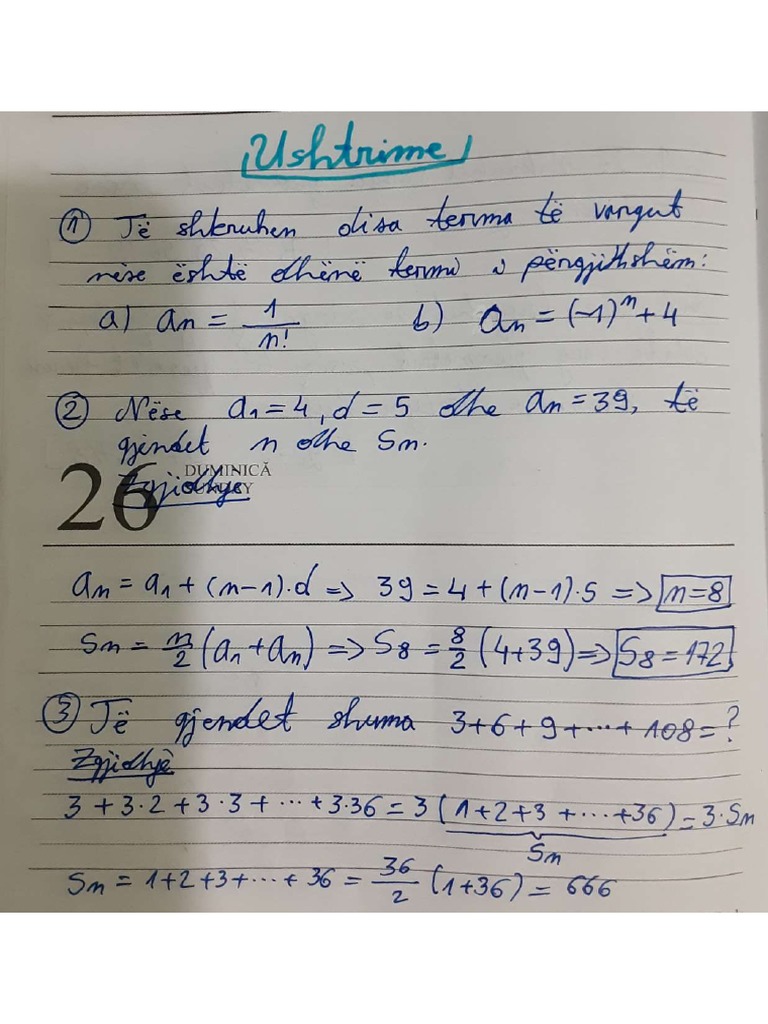 Ushtrime
① Të shkruhen disa terma të vargut
nëse është dhënë termi i përgjithshëm:
a) an = 1/n! b) an = (-1)^n + 4
② Nëse a1 = 4, d = 5 dhe an = 39, të
gjendet n dhe Sn.
26 DUMINICĂ
Zgjidhje
an = a1 + (n-1)·d => 39 = 4 + (n-1)·5 => n=8
Sn = n/2 (a1 + an) => S8 = 8/2 (4+39) => S8 = 172
③ Të gjendet shuma 3+6+9+···+108=?
Zgjidhje
3 + 3·2 + 3·3 + ··· + 3·36 = 3 (1+2+3+···+36) = 3·Sn
Sn
Sn = 1+2+3+···+36 = 36/2 (1+36) = 666